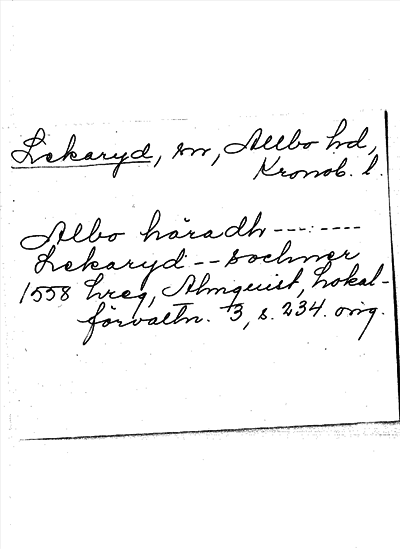 Lekaryd, sn, Allbo hd,
Kronob. l.
Albo häradh --------
Lekaryd -- sochner
1558 hreg, Almquist, Lokal-
förvaltn. 3, s. 234. orig.